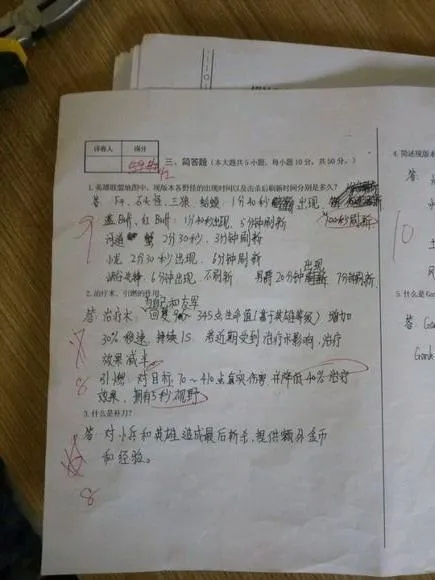 评卷人 得分
三、简答题（本大题共5小题，每小题10分，共50分。）
1.英雄联盟地图中，现版本各野怪的出现时间以及击杀后刷新时间分别是多久？
答 F4、石头怪、三狼、蛤蟆：1分40秒出现，
蓝Buff、红Buff：1分40秒出现，5分钟刷新 100秒刷新
9
河道蟹 2分30秒，3分钟刷新
小龙 2分30秒出现，6分钟刷新
峡谷先锋，6分钟出现，不刷新 男爵20分钟出现 7分钟刷新
2.治疗术、引燃的作用
答 治疗术：为自己和友军回复90~345点生命值（基于英雄等级）增加
30%移速，持续1S。若近期受到治疗术影响，治疗
效果减半
8
引燃：对目标70~410点真实伤害并降低40%治疗
效果，拥有5秒视野
3.什么是补刀？
答 对小兵和英雄造成最后斩杀，提供额外金币
和经验。
8
4.简述现版本
答
10
5.什么是Ga
答
Gank